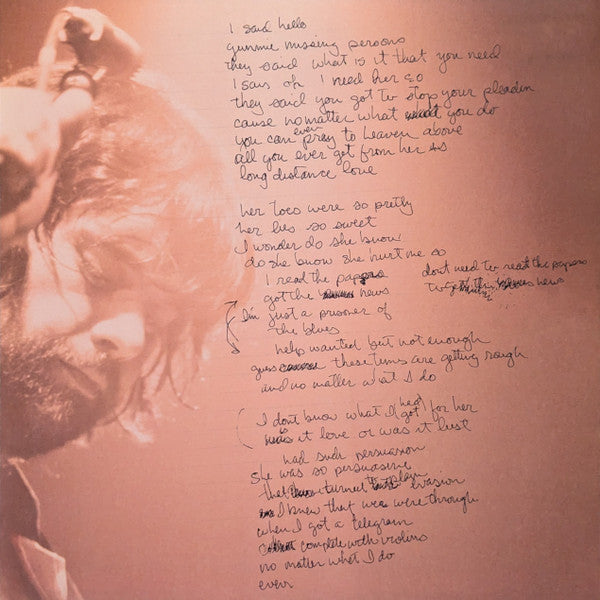 I said hello
gimme missing persons
they said what is it that you need
I says oh I need her so
they said you got to stop your pleadin
cause no matter what you do
you can even pray to heaven above
all you ever get from her is
long distance love
her toes were so pretty
her lies so sweet
I wonder do she know
do she know she hurt me so
I read the papers
dont need to read the papers
got the news
to get the news
I'm just a prisoner of
the blues
help wanted but not enough
guess these times are getting rough
and no matter what I do
I dont know what I had got for her
was it love or was it lust
had such persuasion
She was so persuasive
that turned to plain evasion
I knew that we were through
when I got a telegram
complete with violins
no matter what I do
ever